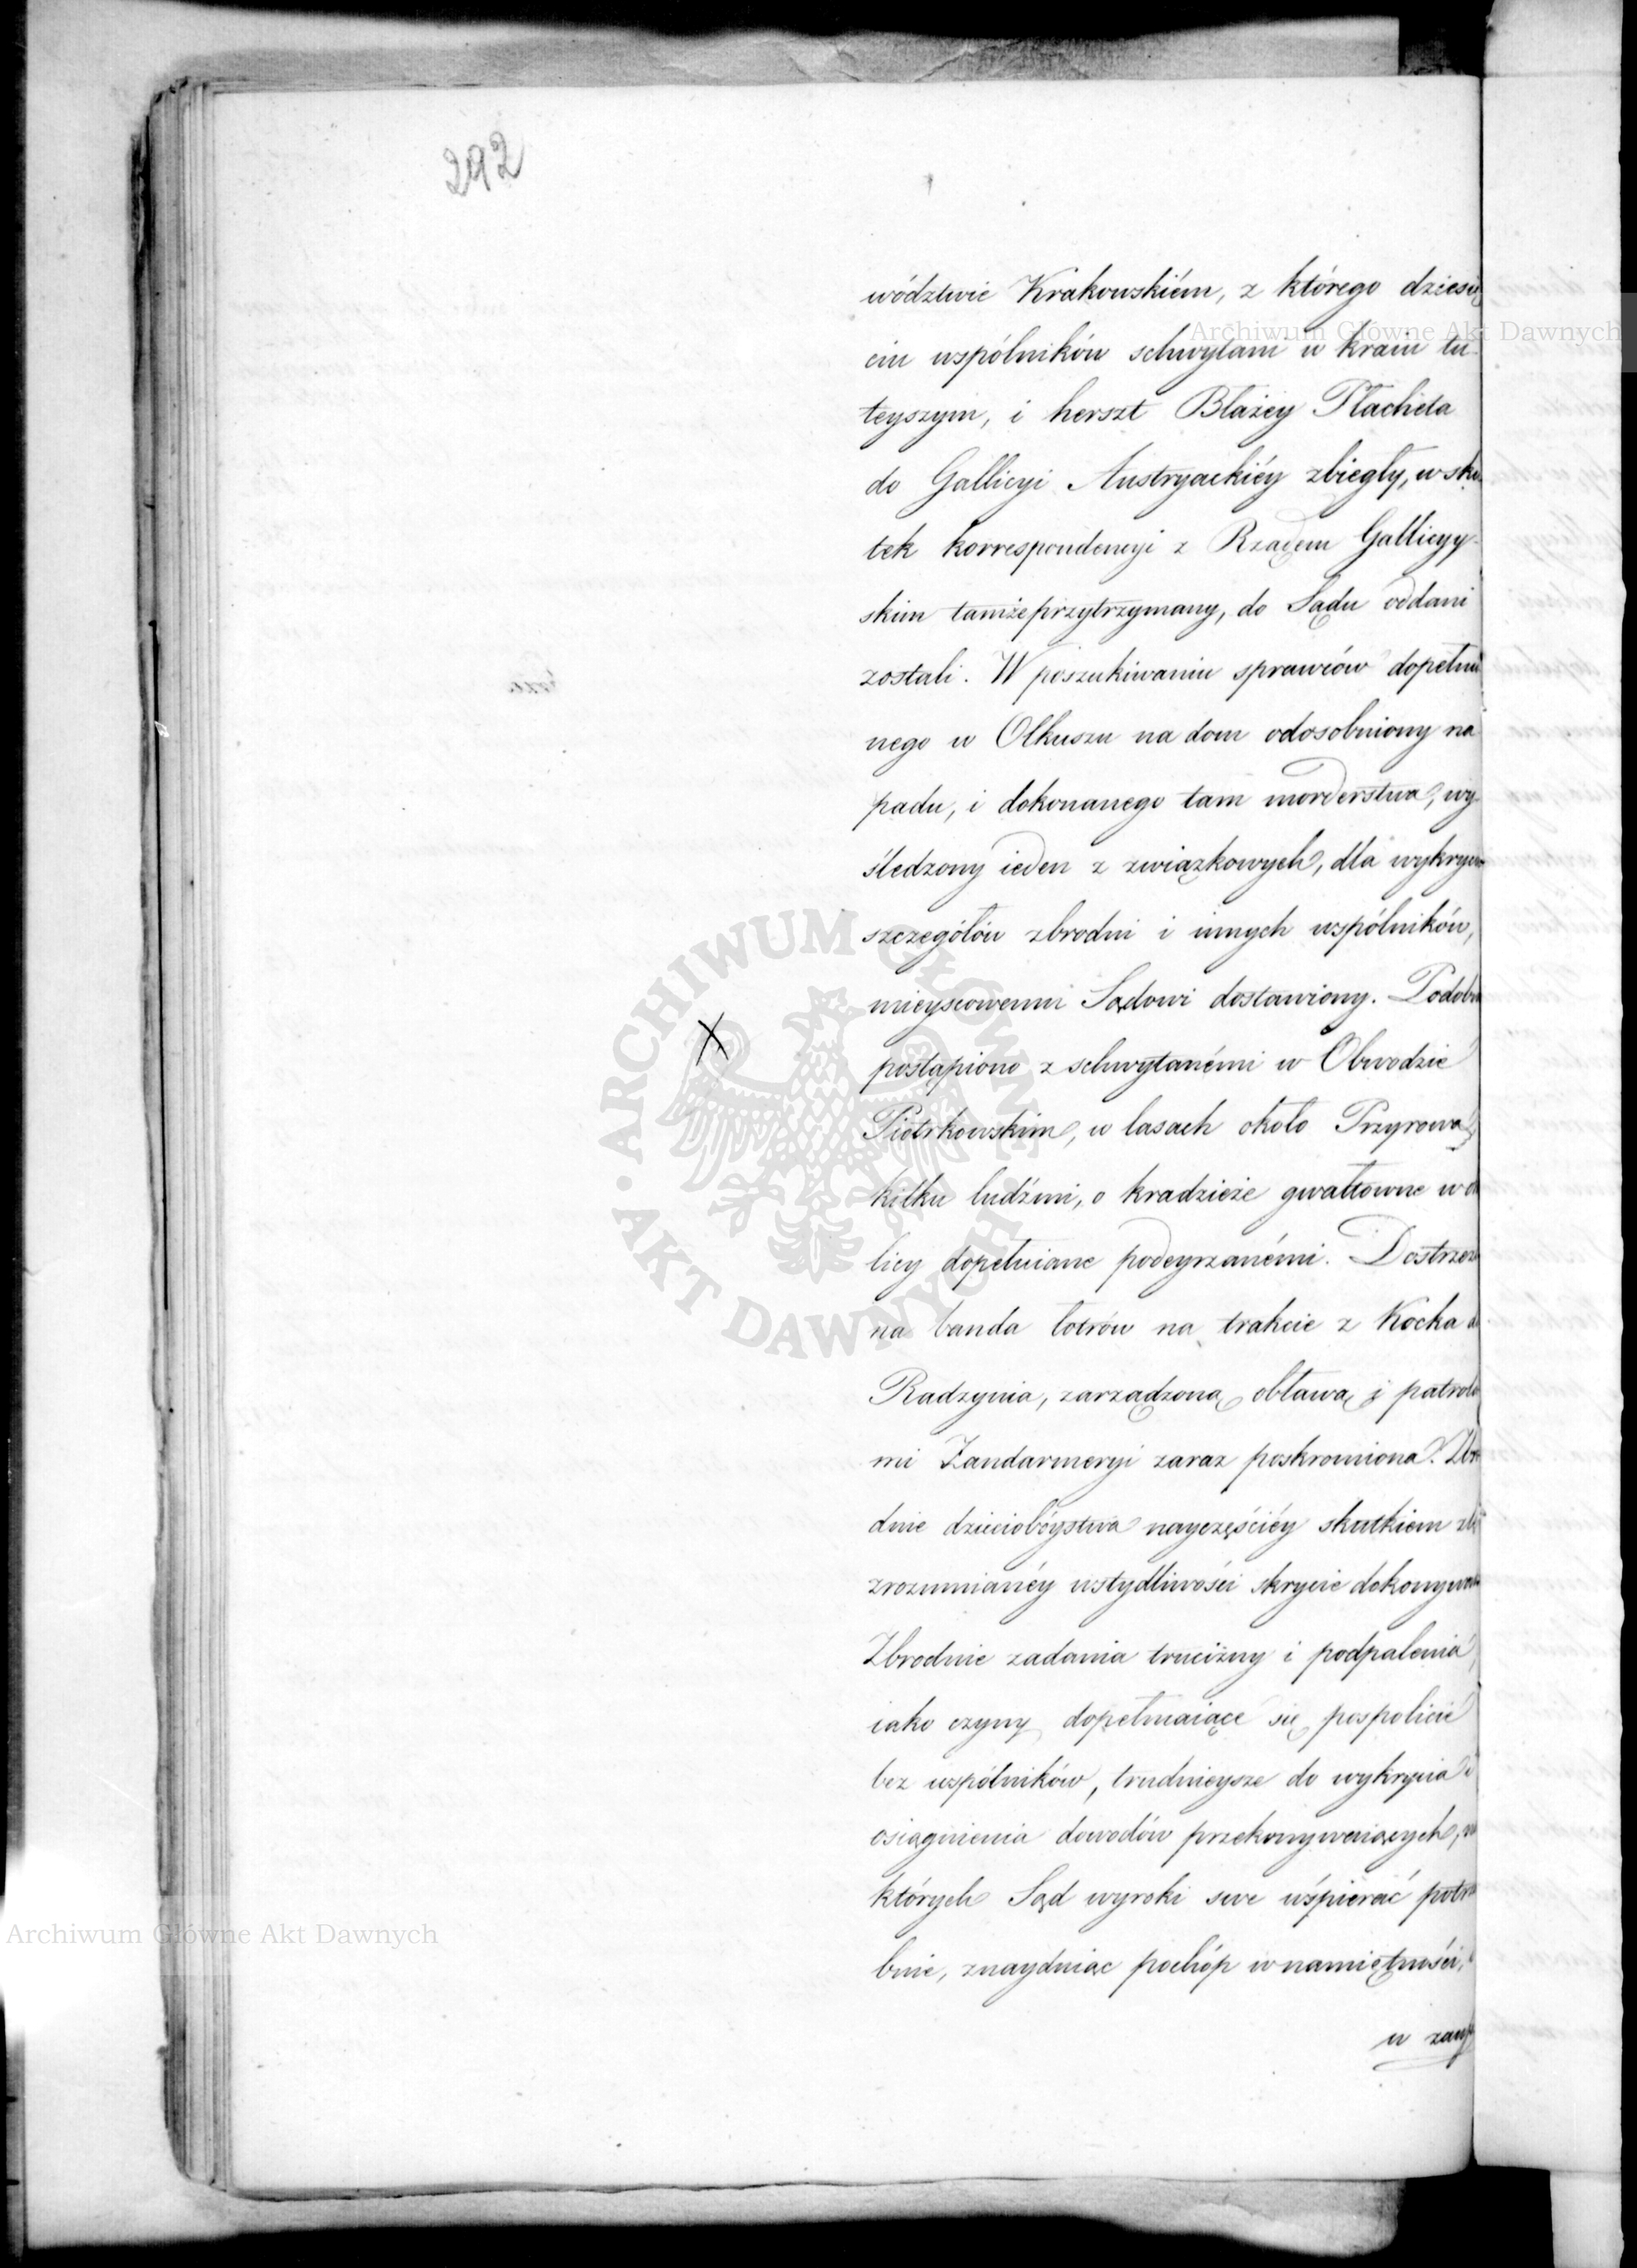 292
wództwie Krakowskiém, z którego dziesię
ciu wspólników schwytani w kraiu tu-
teyszym, i herszt Błażey Płacheta
do Gallicyi Austryackiéy zbiegły, w sku-
tek korrespondencyi z Rządem Gallicyy-
skim tamże przytrzymany, do Sądu oddani
zostali. W poszukiwaniu sprawców dopełnio
nego w Olkuszu na dom odosobniony na
padu, i dokonanego tam morderstwa, wy-
śledzony ieden z związkowych, dla wykrycia
szczegółów zbrodni i innych wspólników,
mieyscowemu Sądowi dostawiony. Podobnie
postąpiono z schwytanémi w Obwodzie
Piotrkowskim, w lasach około Przyrowa,
kilku ludźmi, o kradzieże gwałtowne w oko
licy dopełniane podeyrzanémi. Dostrzeżo
na banda łotrów na trakcie z Kocka do
Radzynia, zarządzoną obławą i patrola
mi Żandarmeryi zaraz poskromiona. Zbro
dnie dzieciobóystwa nayczęściéy skutkiem źle
zrozumianéy wstydliwości skrycie dokonywane
Zbrodnie zadania trucizny i podpalenia,
iako czyny dopełniaiące się pospolicie
bez wspólników, trudnieysze do wykrycia i
osiągnienia dowodów przekonywaiących, na
których Sąd wyroki swe wspierać potrze
bnie, znayduiąc pochóp w namiętności,
w zawz
X
ARCHIWUM GŁÓWNE AKT DAWNYCH
Archiwum Główne Akt Dawnych
Archiwum Główne Akt Dawnych